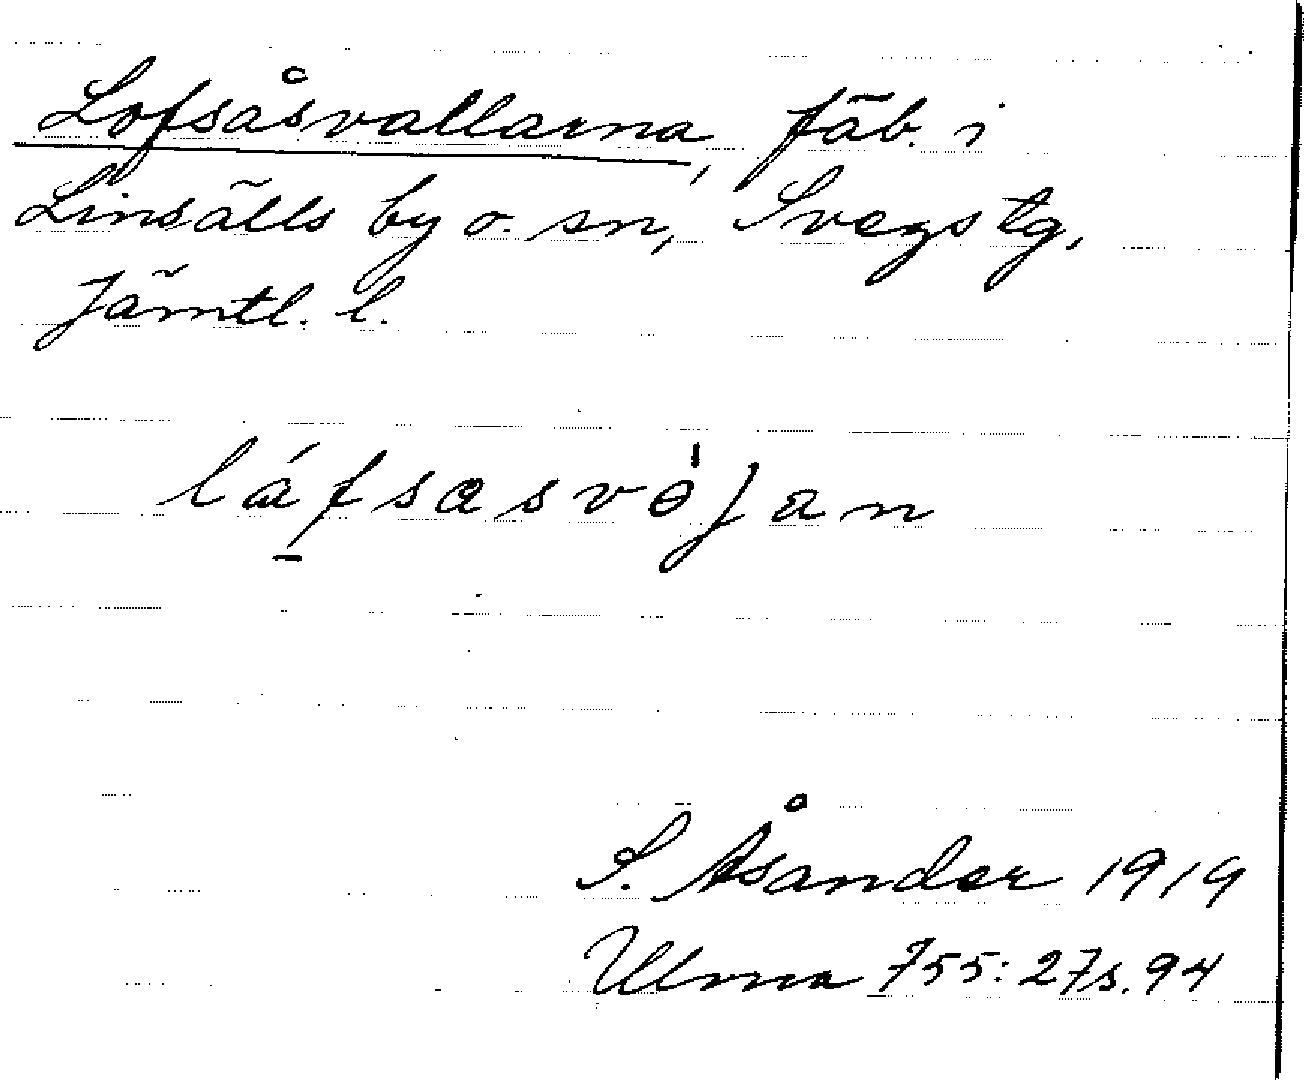 Lofsåsvallarna, fäb. i
Linsälls by o. sn, Svegs tg,
Jämtl. l.
láfsasvɵ́jan
S. Åsander 1919
Ulma 755:27 s. 94